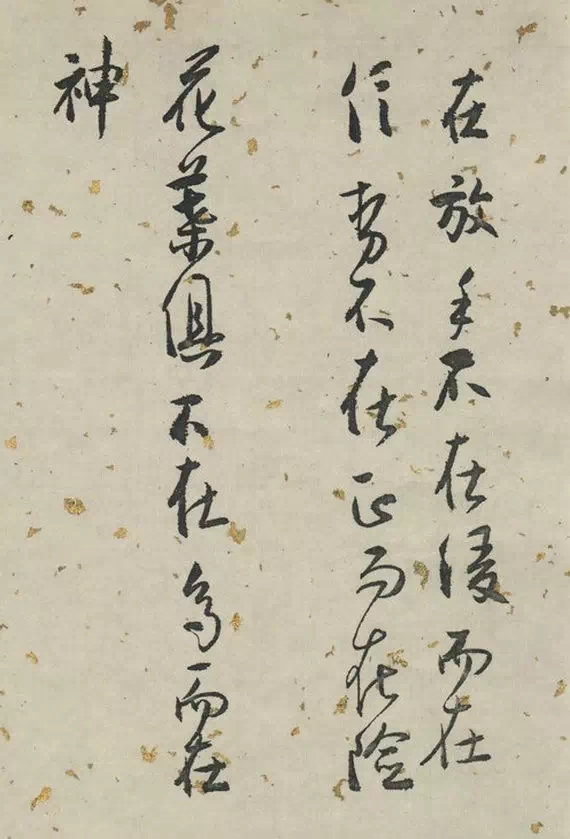 在放手不在而在
信势不在正而在險
花葉俱不在多而在
神